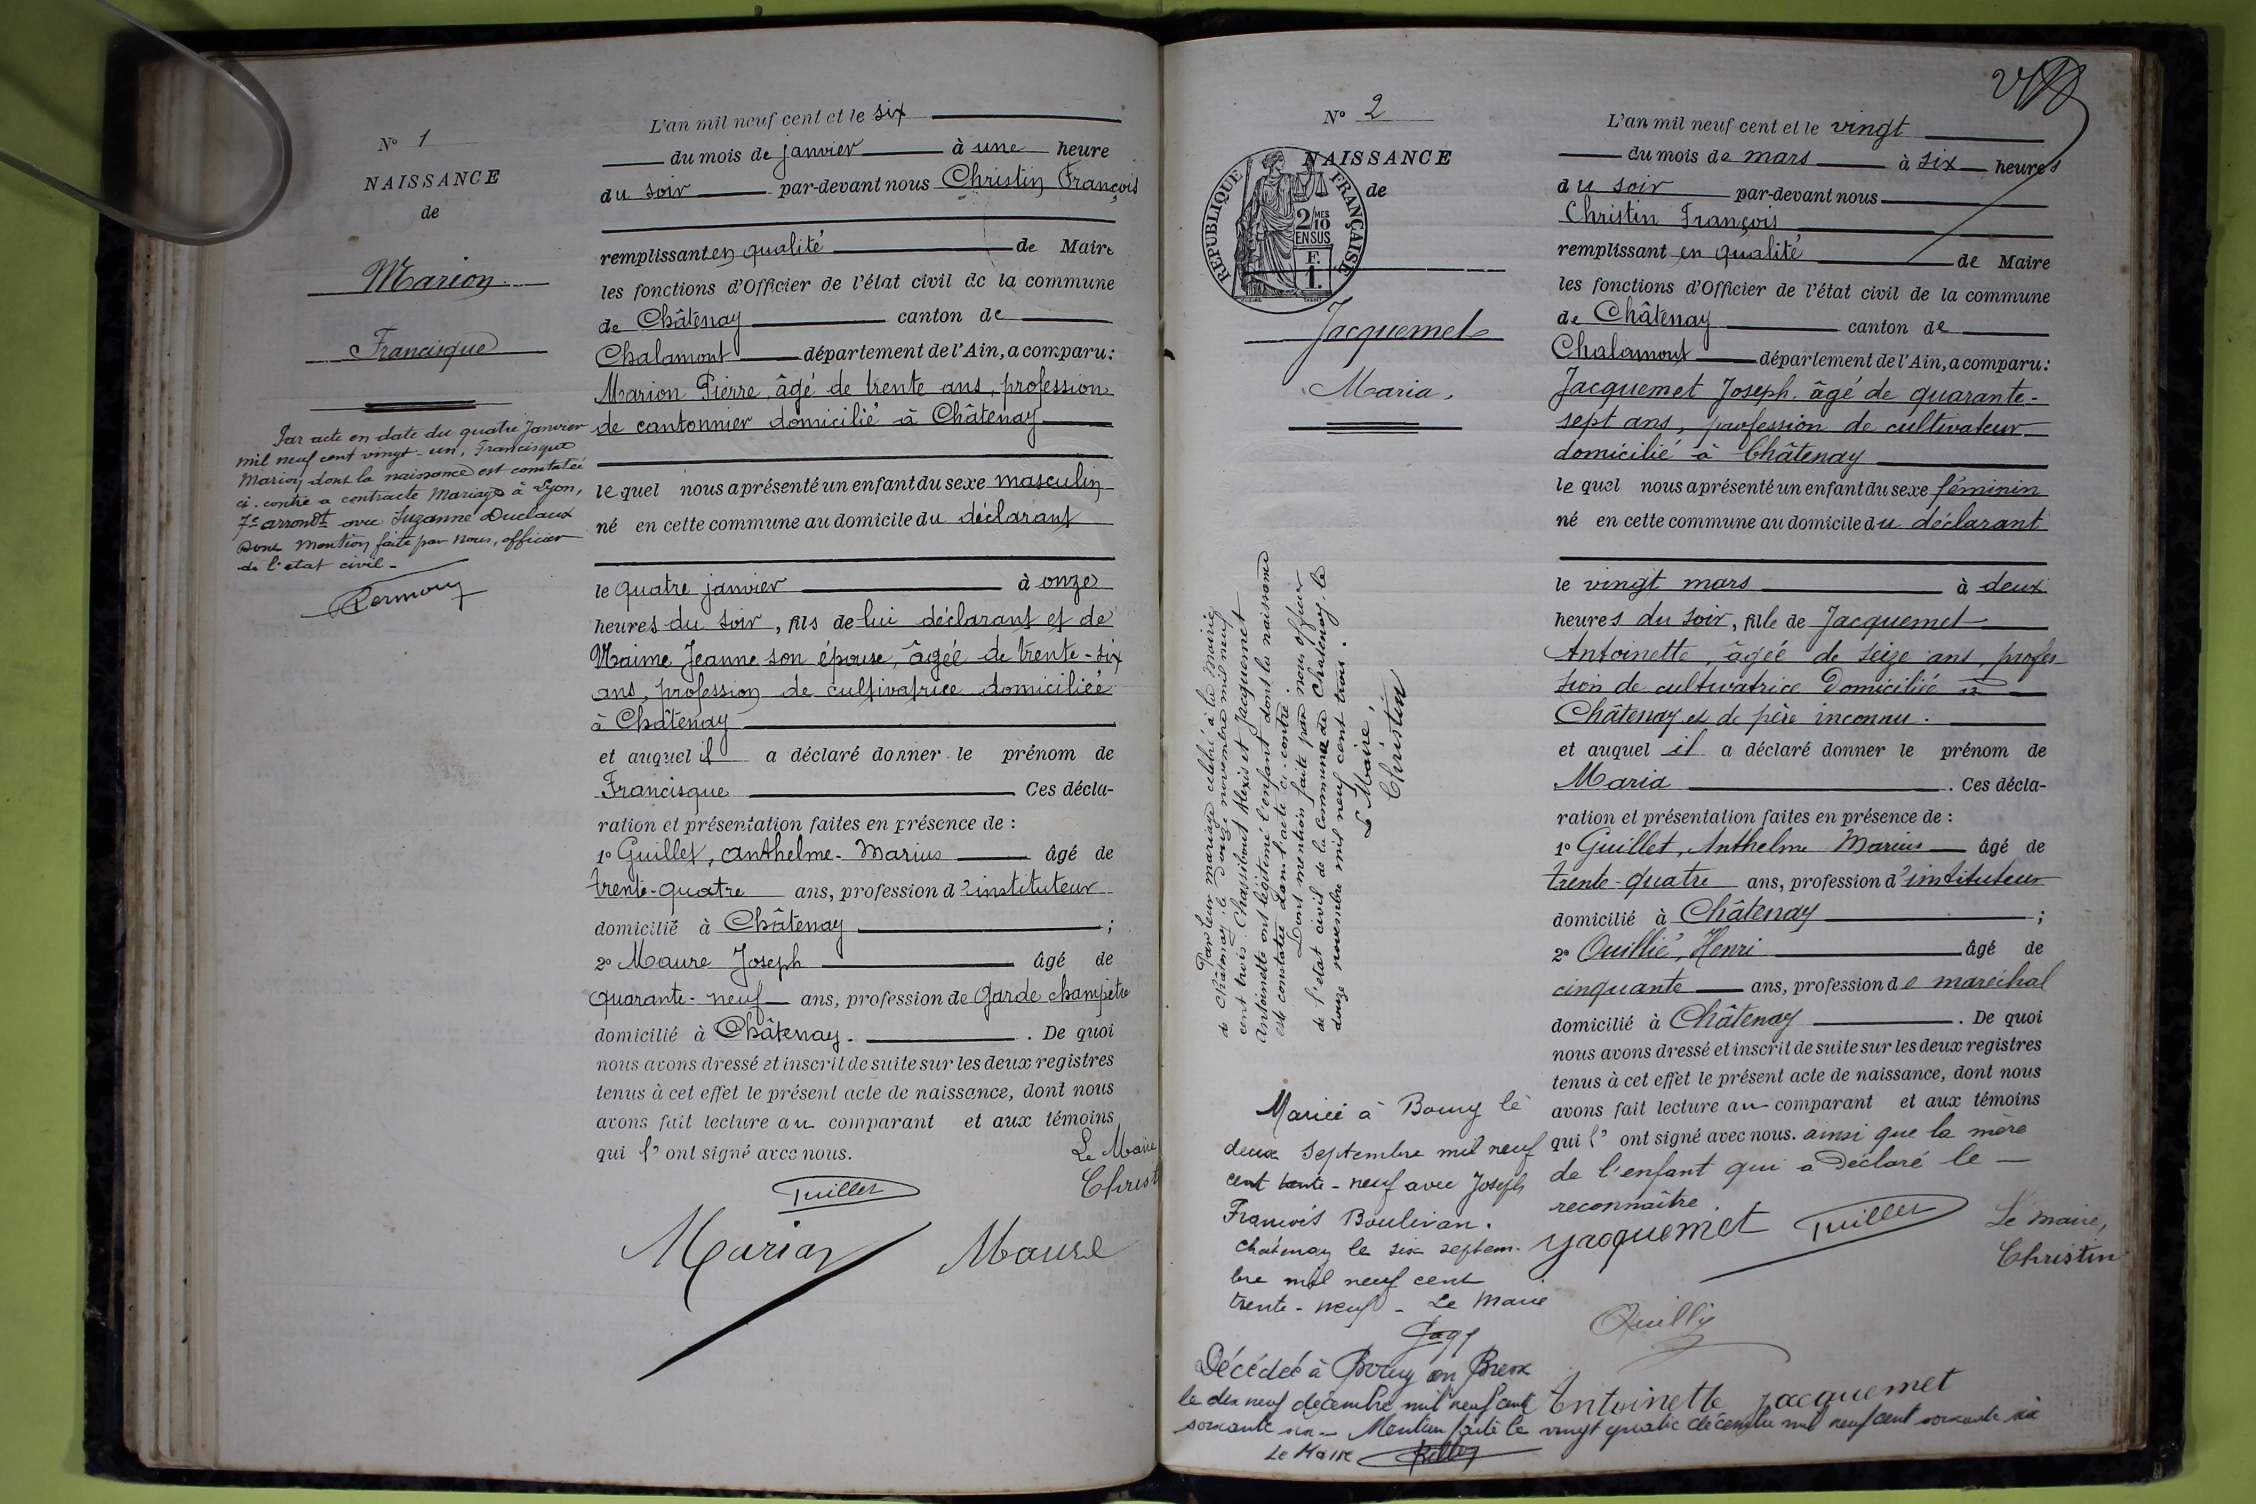 N° 1
NAISSANCE
de
Marion
Francisque
Par acte en date du quatre Janvier
mil neuf cent vingt-un, Francisque
Marion dont la naissance est constatée
ci-contre a contracté Mariage à Lyon,
7e arrondt avec Suzanne Duclaux
Dont Mention faite par Nous, officier
de l'état civil.
L'an mil neuf cent et le six
du mois de janvier à une heure
du soir par-devant nous Christin François
remplissant en qualité de Maire
les fonctions d'Officier de l'état civil de la commune
de Châtenay canton de
Chalamont département de l'Ain, a comparu:
Marion Pierre, âgé de trente ans, profession
de cantonnier domicilié à Châtenay
lequel nous a présenté un enfant du sexe masculin
né en cette commune au domicile du déclarant
le quatre janvier à onze
heures du soir, fils de lui déclarant et de
Maime Jeanne son épouse, âgée de trente-six
ans, profession de cultivatrice domiciliée
à Châtenay
et auquel il a déclaré donner le prénom de
Francisque Ces décla-
ration et présentation faites en présence de :
1° Guillet, Anthelme-Marius âgé de
trente-quatre ans, profession d'instituteur
domicilié à Châtenay ;
2° Maure Joseph âgé de
quarante-neuf ans, profession de Garde champêtre
domicilié à Châtenay. . De quoi
nous avons dressé et inscrit de suite sur les deux registres
tenus à cet effet le présent acte de naissance, dont nous
avons fait lecture au comparant et aux témoins
qui l'ont signé avec nous.
Le Maire
Christ
Guillet
Marion Maure
N° 2
NAISSANCE
de
RÉPUBLIQUE FRANÇAISE
2/10 MES
EN SUS
F.
1.
Jacquemet
Maria.
Par leur mariage célébré à la Mairie
de Châtenay le douze novembre mil neuf
cent trois Chassibout Alexis et Jacquemet
Antoinette ont légitimé l'enfant dont la naissance
est constatée dans l'acte ci-contre.
Dont mention faite par nous officier
de l'état civil de la Commune de Châtenay le
douze novembre mil neuf cent trois.
Le Maire,
Christin
Mariée à Bourg le
deux Septembre mil neuf
cent trente-neuf avec Joseph
François Boulivan.
Chatenay le six septem-
bre mil neuf cent
trente-neuf - Le Maire
Décédée à Bourg en Bresse
le dix neuf décembre mil neuf cent
soixante six - Mention faite le vingt quatre décembre mil neuf cent soixante six
Le Maire
L'an mil neuf cent et le vingt
du mois de mars à six heures
du soir par-devant nous
Christin François
remplissant en qualité de Maire
les fonctions d'Officier de l'état civil de la commune
de Châtenay canton de
Chalamont département de l'Ain, a comparu:
Jacquemet Joseph, âgé de quarante-
sept ans, profession de cultivateur
domicilié à Châtenay
lequel nous a présenté un enfant du sexe féminin
né en cette commune au domicile du déclarant
le vingt mars à deux
heures du soir, fille de Jacquemet
Antoinette, âgée de seize ans, profes
sion de cultivatrice Domiciliée à
Châtenay et de père inconnu.
et auquel il a déclaré donner le prénom de
Maria . Ces décla-
ration et présentation faites en présence de :
1° Guillet, Anthelme Marius âgé de
trente-quatre ans, profession d'instituteur
domicilié à Châtenay ;
2° Ouillié, Henri âgé de
cinquante ans, profession de maréchal
domicilié à Châtenay . De quoi
nous avons dressé et inscrit de suite sur les deux registres
tenus à cet effet le présent acte de naissance, dont nous
avons fait lecture au comparant et aux témoins
qui l'ont signé avec nous. ainsi que la mère
de l'enfant qui a Déclaré le
reconnaître.
Jacquemet Guillet
Le maire,
Christin
Antoinette jacquemet